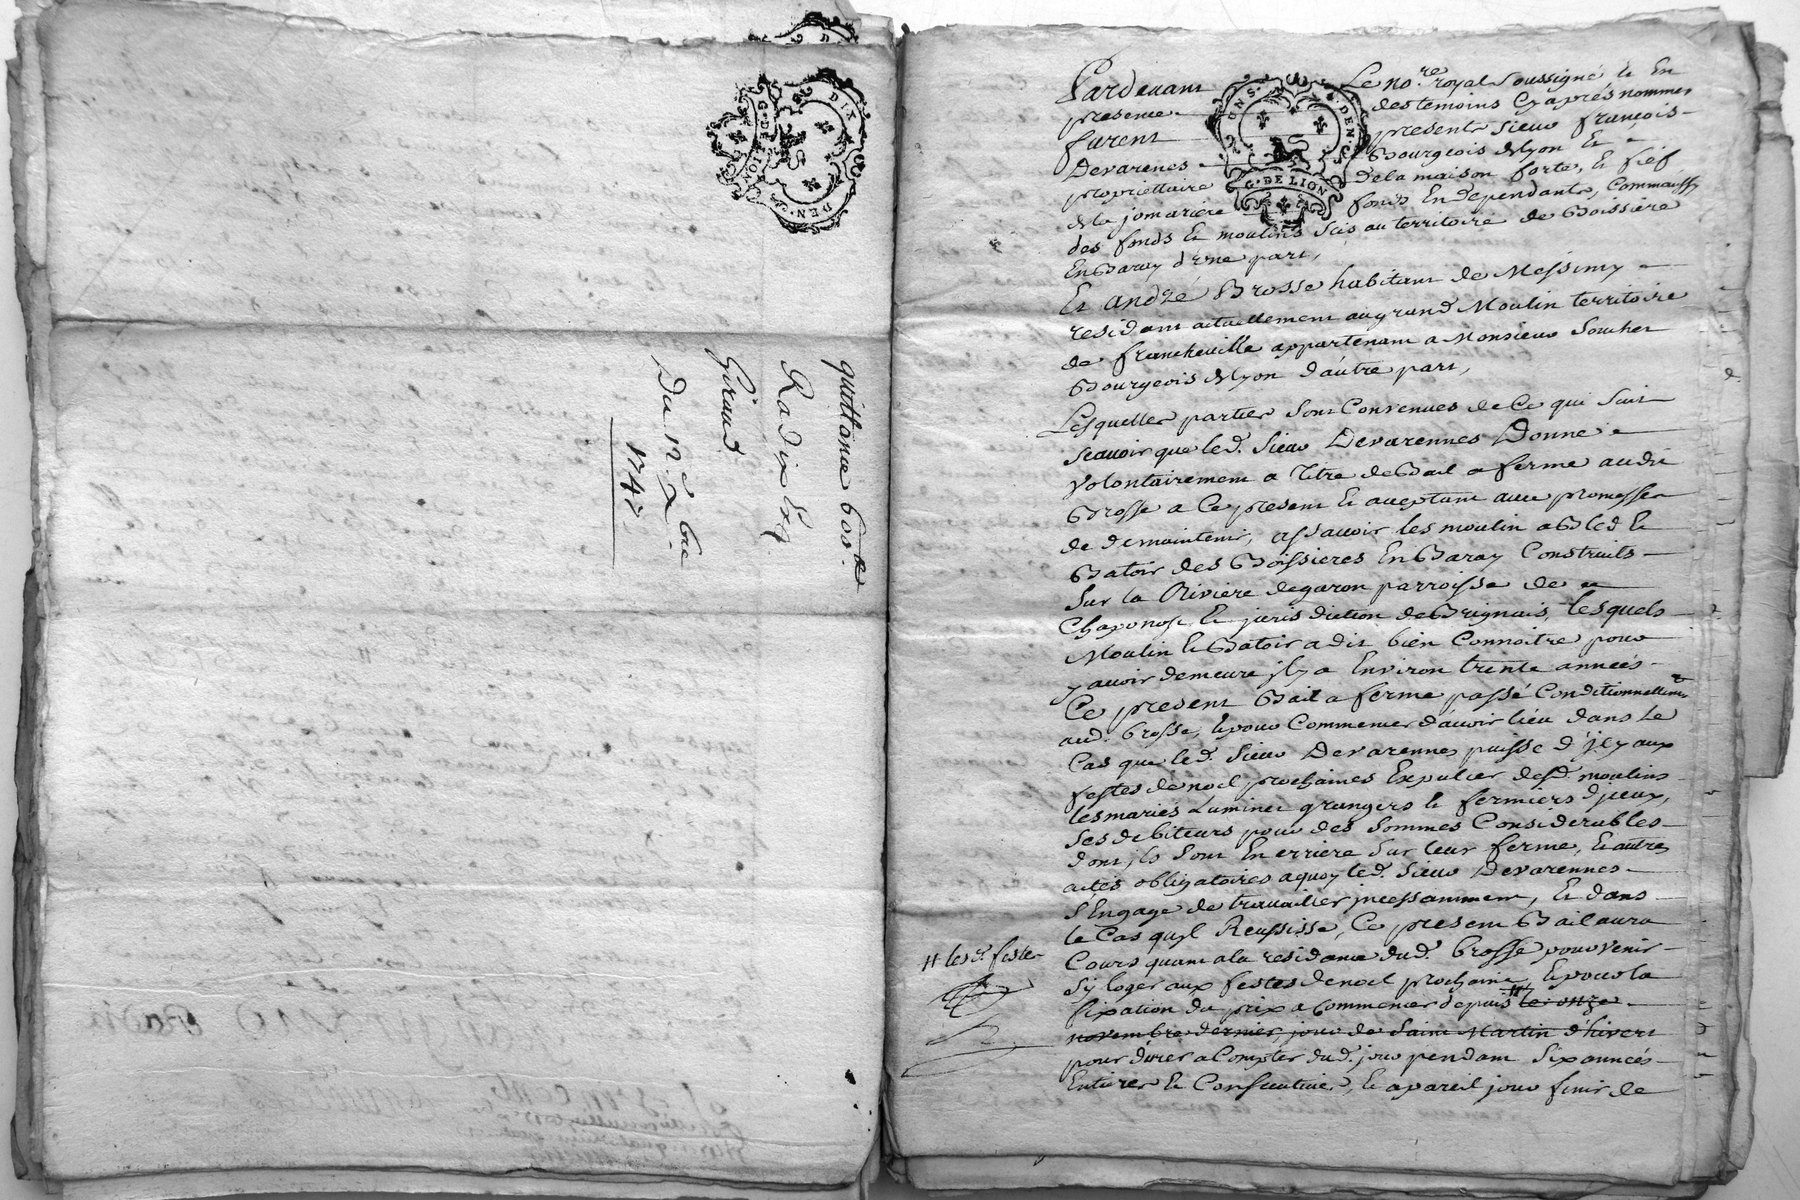 DIX DEN.
G. DE LION
quittance 600 ℔
Radix Et
Giraud
Du 12e xbre
1747
Pardevant Le nore. royal soussigné et En
presence des temoins Cy après nommes
furent presents sieur françois
Devarenes Bourgeois de Lyon Et
proprietaire de la maison forte, Et fief
de la jomariere fonds En dependants, Comm'aussy
des fonds Et moulins scis au territoire de Boissiere
En Baray d'une part,
Et André Brosse habitant de Messimy
residant actuellement au grand Moulin territoire
de francheville appartenant a Monsieur Souchet
Bourgeois de Lyon d'autre part,
Lesquelles parties sont Convenues de Ce qui suit
scavoir que led. sieur Devarennes Donne
volontairement a titre de Bail a ferme audit
Brosse a Ce present Et acceptant avec promesse
de maintenir, assavoir les moulin a Bled Et
Batoir des Boissieres En Baray Construits
sur la Riviere de garon parroisse de
Chaponost Et jurisdiction de Brignais, lesquels
Moulin Et Batoir a dit bien Connoitre pour
y avoir demeuré il y a Environ trente années
Ce present Bail a ferme passé Conditionnellemt
aud. brosse, Et pour Commencer d'avoir lieu dans le
Cas que led. sieur Devarennes puisse d'jcy aux
festes de noel prochaines Expulcer desd. moulins
les mariés Luminet grangers Et fermiers d'jceux,
ses debiteurs pour des sommes Considerables
dont jls sont En erriere sur leur ferme, Et autres
actes obligatoires a quoy led. sieur Devarennes
s'Engage de travailler jncessamment, Et dans
le Cas qu'jl Reussisse, Ce present Bail aura
Cours quant a la residance dud. brosse pour venir
s'y loger aux festes de noel prochain Et pour la
// lesd. festes
fixation du prix a Commencer depuis // le onze
novembre dernier jour de Saint Martin d'hivert
pour durer a Compter dud. jour pendant six années
Entieres Et Consecutives, Et a pareil jour finir de